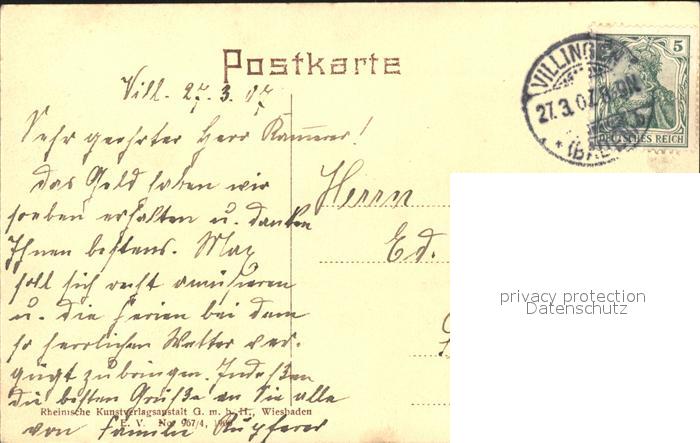 Postkarte
VILLINGEN
27.3.07. 8-9N
* (BADEN)
5
DEUTSCHES REICH
Vill. 27. 3. 07
Sehr geehrter Herr Kammerer!
Das Geld haben wir
soeben erhalten u. danken
Ihnen bestens. Max
soll sich recht amüsieren
u. die Ferien bei dem
so herrlichen Wetter ver-
gnügt zubringen. Indessen
die besten Grüße an Sie alle
von Familie Kupferer
Herrn
Ed.
privacy protection
Datenschutz
Rheinische Kunstverlagsanstalt G. m. b. H., Wiesbaden
E. V. No. 967/4, 1906